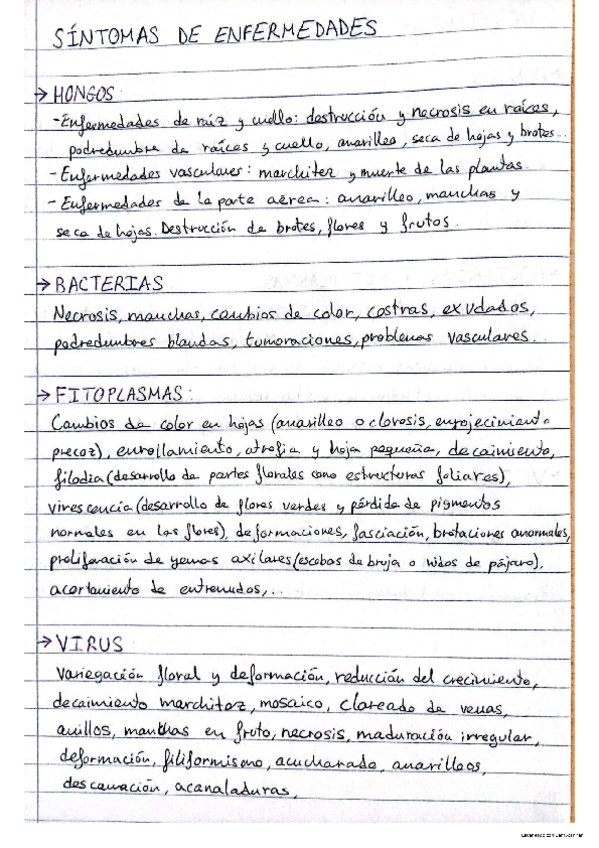 SÍNTOMAS DE ENFERMEDADES
→ HONGOS
- Enfermedades de raíz y cuello: destrucción y necrosis en raíces,
podredumbre de raíces y cuello, amarilleo, seca de hojas y brotes...
- Enfermedades vasculares: marchitez y muerte de las plantas
- Enfermedades de la parte aérea: amarilleo, manchas y
seca de hojas. Destrucción de brotes, flores y frutos.
→ BACTERIAS
Necrosis, manchas, cambios de color, costras, exudados,
podredumbres blandas, tumoraciones, problemas vasculares.
→ FITOPLASMAS:
Cambios de color en hojas (amarilleo o clorosis, enrojecimiento
precoz), enrollamiento, atrofia y hoja pequeña, decaimiento,
filodia (desarrollo de partes florales como estructuras foliares),
virescencia (desarrollo de flores verdes y pérdida de pigmentos
normales en las flores), deformaciones, fasciación, brotaciones anormales,
proliferación de yemas axilares (escobas de bruja o nidos de pájaro),
acortamiento de entrenudos,...
→ VIRUS
Variegación floral y deformación, reducción del crecimiento,
decaimiento marchitez, mosaico, clareado de venas,
anillos, manchas en fruto, necrosis, maduración irregular,
deformación, filiformismo, acucharado, amarilleos,
descamación, acanaladuras,